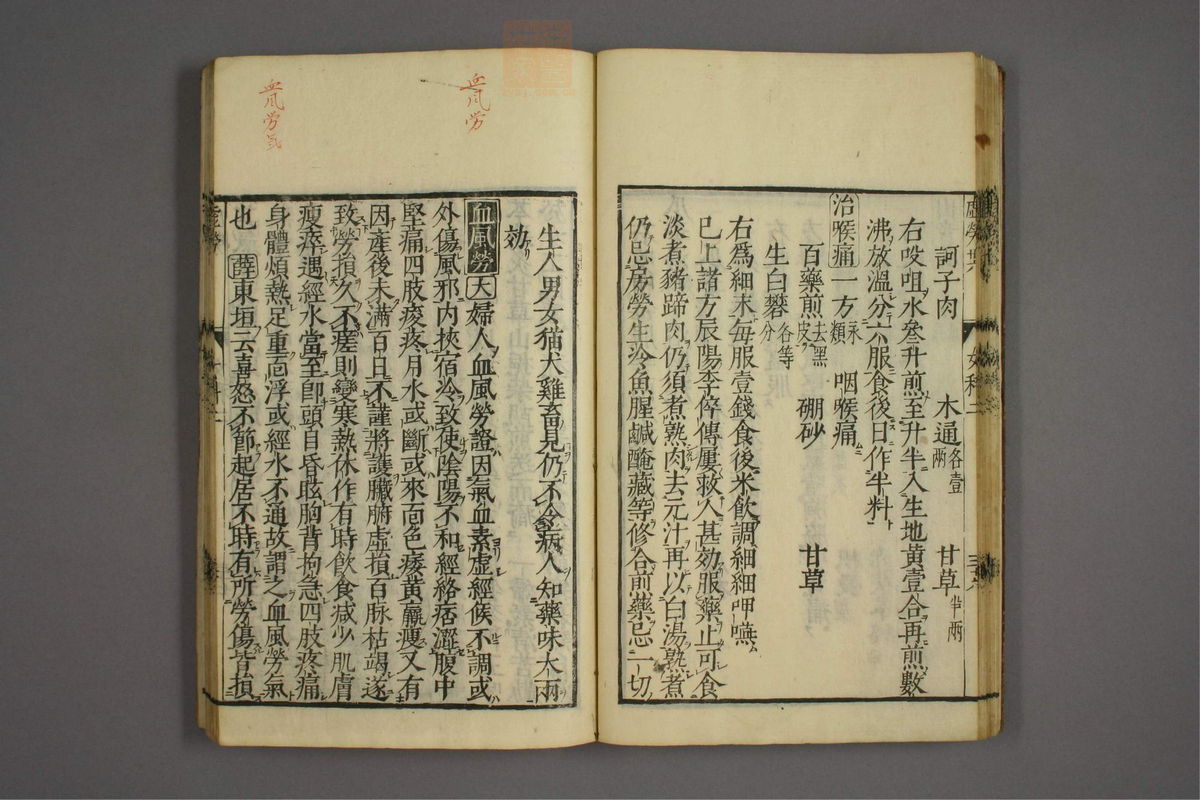 訶子肉　木通各壹兩　甘草半兩
右㕮咀水叁升煎至升半入生地黄壹合再煎數
沸放溫分六服食後日作半料
治喉痛一方永類　咽喉痛
百藥煎去黑皮　硼砂　甘草
生白礬各等分
右爲細末每服壹錢食後米飲調細細呷嚥
已上諸方辰陽李倅傳屢救人甚効服藥止可食
淡煮豬蹄肉仍須煮熟肉去元汁再以白湯熟煮
仍忌房勞生冷魚腥鹹醃藏等修合前藥忌一切
生人男女猫犬雞畜見仍不令病人知藥味大兩
効
血風勞大婦人血風勞證因氣血素虛經候不調或
外傷風邪内挾宿冷致使陰陽不和經絡痞澀腹中
堅痛四肢痠疼月水或斷或來面色痿黄羸瘦又有
因產後未滿百日不謹將護臟腑虛損百脉枯竭遂
致勞損久不瘥則變寒熱休作有時飲食減少肌膚
瘦瘁遇經水當至即頭目昏眩胸背拘急四肢疼痛
身體煩熱足重面浮或經水不通故謂之血風勞氣
也薛東垣云喜怒不節起居不時有所勞傷皆損
血風勞
血風勞氣
女科二